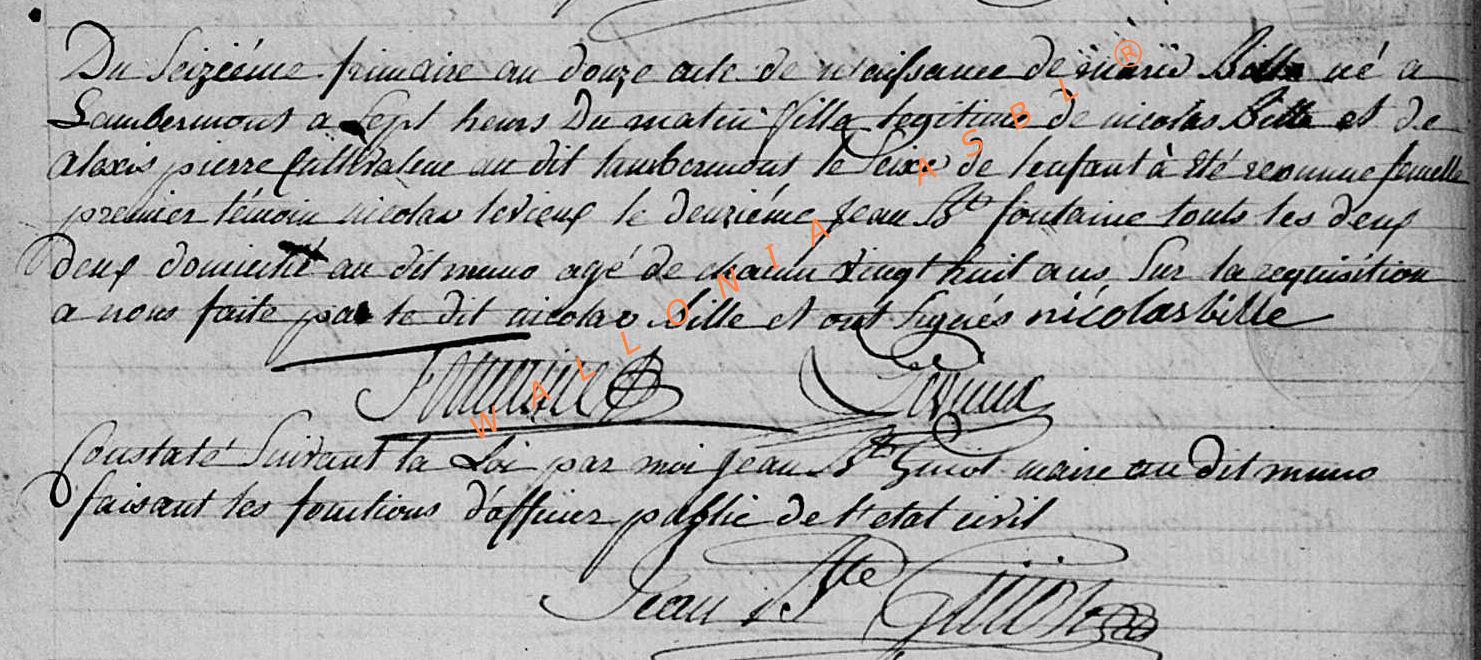 Du Seizième frimaire an douze acte de naissance de marie Bille né a
Lambermont a Sept heurs Du matin fille legitime de nicolas Bille et de
alexis pierre Cultivateur au dit lambermont le Seixe de lenfant à été reconnue femelle
premier témoin nicolas levieux le deuxiéme Jean Bt fontaine touts les deux
deux domicilié au dit muno agé de chacun vingt huit ans Sur la requisition
a nous faite par le dit nicolas bille et ont Signés nicolas bille
Fontaine Levieux
Constaté Suivant la Loi par moi Jean Bte Guiot maire au dit muno
faisant les fonctions d'officier public de l'etat civil
Jean Bte Guiot
WALLONIA ASBL ®